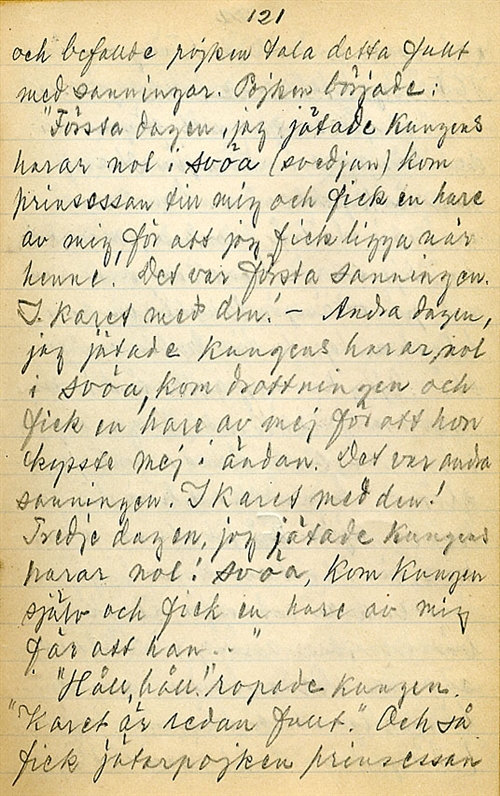 121
och befallde pojken tala detta fullt
med sanningar. Pojken började:
"Första dagen, jag jätade kungens
harar nol i svöa (svedjan) kom
prinsessan till mig och fick en hare
av mig, för att jag fick ligga när
henne. Det var första sanningen.
I karet med den! – Andra dagen,
jag jätade kungens harar, nol
i svöa, kom drottningen och
fick en hare av mej för att hon
kysste mej i ändan. Det var andra
sanningen. I karet med den!
Tredje dagen, jag jätade kungens
harar nol i svöa, kom kungen
själv och fick en hare av mig
för att han .. "
"Håll, håll!" ropade kungen.
"Karet är redan fullt." Och så
fick jätarpojken prinsessan